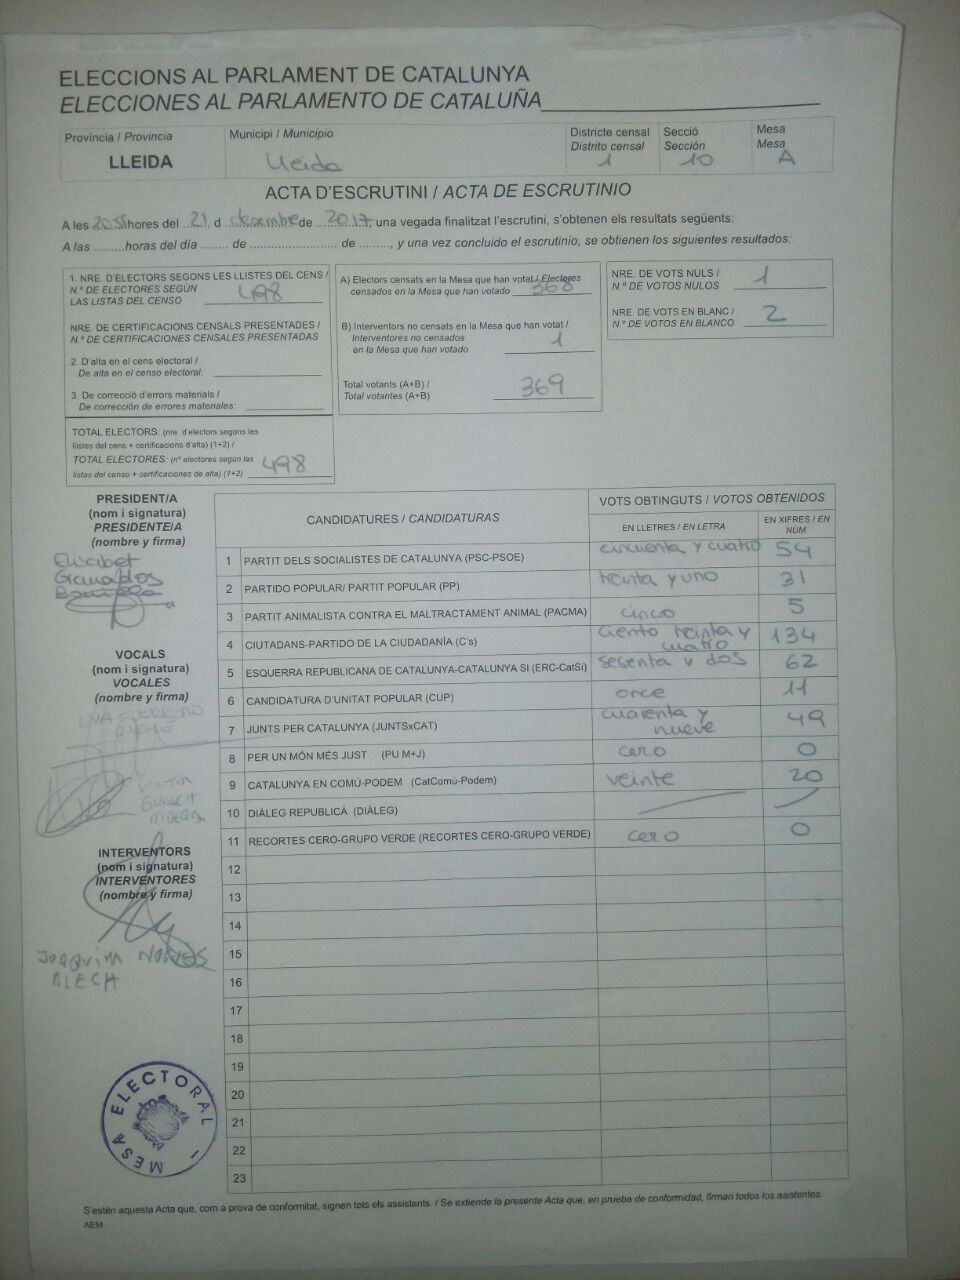 ELECCIONS AL PARLAMENT DE CATALUNYA
ELECCIONES AL PARLAMENTO DE CATALUÑA
Província / Provincia
LLEIDA
Municipi / Municipio
Lleida
Districte censal
Distrito censal
1
Secció
Sección
10
Mesa
Mesa
A
ACTA D'ESCRUTINI / ACTA DE ESCRUTINIO
A les 20:55 hores del 21 d desembre de 2017, una vegada finalitzat l'escrutini, s'obtenen els resultats següents:
A las .........horas del día ........ de ......................... de ........., y una vez concluido el escrutinio, se obtienen los siguientes resultados:
1. NRE. D'ELECTORS SEGONS LES LLISTES DEL CENS /
N.º DE ELECTORES SEGÚN
LAS LISTAS DEL CENSO 498
NRE. DE CERTIFICACIONS CENSALS PRESENTADES /
N.º DE CERTIFICACIONES CENSALES PRESENTADAS
2. D'alta en el cens electoral /
De alta en el censo electoral:
3. De correcció d'errors materials /
De corrección de errores materiales:
TOTAL ELECTORS: (nre. d'electors segons les
llistes del cens + certificacions d'alta) (1+2) /
TOTAL ELECTORES: (nº electores según las
listas del censo + certificaciones de alta) (1+2) 498
A) Electors censats en la Mesa que han votat / Electores
censados en la Mesa que han votado 368
B) Interventors no censats en la Mesa que han votat /
Interventores no censados
en la Mesa que han votado 1
Total votants (A+B) /
Total votantes (A+B) 369
NRE. DE VOTS NULS /
N º DE VOTOS NULOS 1
NRE. DE VOTS EN BLANC /
N.º DE VOTOS EN BLANCO 2
PRESIDENT/A
(nom i signatura)
PRESIDENTE/A
(nombre y firma)
Elisabet
Granados
VOCALS
(nom i signatura)
VOCALES
(nombre y firma)
INTERVENTORS
(nom i signatura)
INTERVENTORES
(nombre y firma)
JOAQUIMA
BLECH
MESA ELECTORAL
CANDIDATURES / CANDIDATURAS
VOTS OBTINGUTS / VOTOS OBTENIDOS
EN LLETRES / EN LETRA
EN XIFRES / EN
NÚM.
1 PARTIT DELS SOCIALISTES DE CATALUNYA (PSC-PSOE) cincuenta y cuatro 54
2 PARTIDO POPULAR/ PARTIT POPULAR (PP) treinta y uno 31
3 PARTIT ANIMALISTA CONTRA EL MALTRACTAMENT ANIMAL (PACMA) cinco 5
4 CIUTADANS-PARTIDO DE LA CIUDADANÍA (C's) ciento treinta y cuatro 134
5 ESQUERRA REPUBLICANA DE CATALUNYA-CATALUNYA SI (ERC-CatSí) sesenta y dos 62
6 CANDIDATURA D'UNITAT POPULAR (CUP) once 11
7 JUNTS PER CATALUNYA (JUNTSxCAT) cuarenta y nueve 49
8 PER UN MÓN MÉS JUST (PU M+J) cero 0
9 CATALUNYA EN COMÚ-PODEM (CatComú-Podem) veinte 20
10 DIÀLEG REPUBLICÀ (DIÀLEG)
11 RECORTES CERO-GRUPO VERDE (RECORTES CERO-GRUPO VERDE) cero 0
12
13
14
15
16
17
18
19
20
21
22
23
S'estén aquesta Acta que, com a prova de conformitat, signen tots els assistents. / Se extiende la presente Acta que, en prueba de conformidad, firman todos los asistentes.
AEM